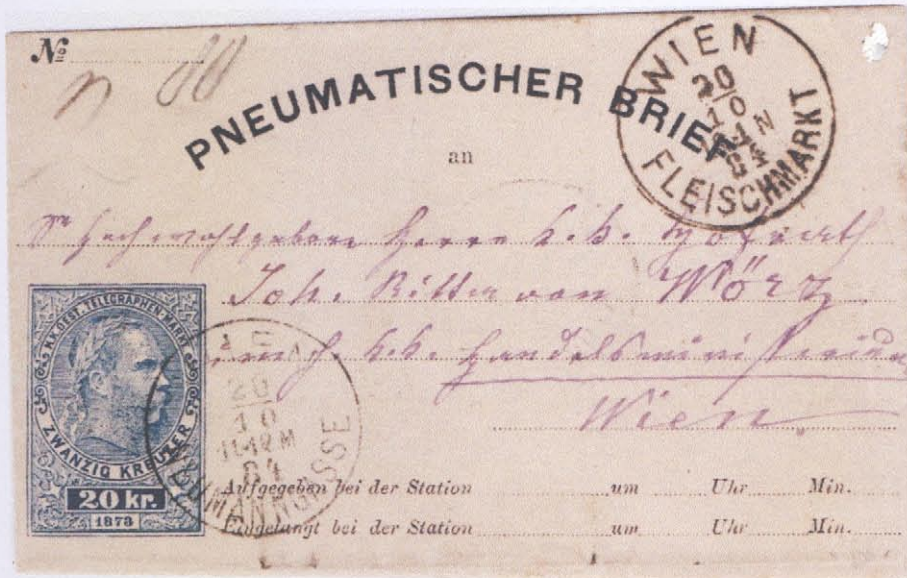 №
PNEUMATISCHER BRIEF
an
WIEN
20
10
84
FLEISCHMARKT
Sr Hochwohlgeboren Herrn k.k. Hofrath
Joh. Ritter von Wörz
k.k. Handelsministerium
Wien
K.K. OEST. TELEGRAPHEN-MARKE
ZWANZIG KREUZER
20 kr.
1873
20
10
84
NEUMANNSGASSE
Aufgegeben bei der Station um Uhr Min.
Eingelangt bei der Station um Uhr Min.